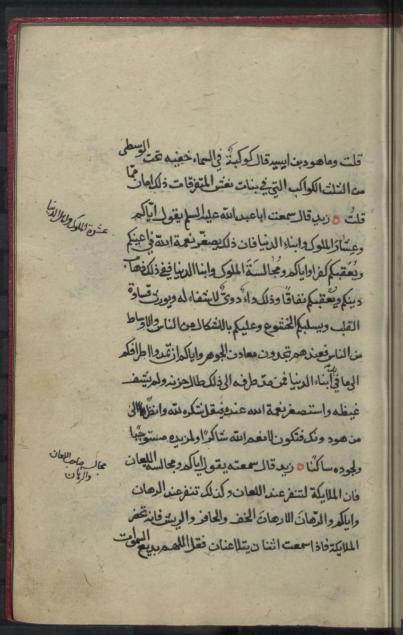 قلت وما هود بن اسيد قال كوكبة في السماء خفية تحت الوسطى
من الثلث الكواكب التي في بنات نعش المتفرقات ذلك امان مما
قلت زيد قال سمعت ابا عبد الله عليه السلم يقول اياكم
وعشار الملوك وابناء الدنيا فان ذلك يصغر نعمة الله في اعينكم
ويعقبكم كفرا واياكم ومجالسة الملوك وابناء الدنيا ففي ذلك ذهاب
دينكم ويعقبكم نفاقا وذلك داء دوي لا شفاء له ويورث قساوة
القلب ويسلبكم الخشوع وعليكم بالاشكال من الناس والاوساط
من الناس فعندهم تجدون معادن الجوهر واياكم ان تمدوا اطرافكم
الى ما في ايدي ابناء الدنيا فمن مد طرفه الى ذلك طال حزنه ولم يشف
غيظه واستصغر نعمة الله عنده فيقل شكره لله وانظر الى
من هو دونك فتكون لانعم الله شاكرا ولمزيده مستوجبا
ولجوده ساكنا زيد قال سمعته يقول اياكم ومجالسة اللعان
فان الملايكة لتنفر عند اللعان وكذلك تنفر عند الرهان
واياكم والرهان الا رهان الخف والحافر والريش فانه تحضر
الملايكة فاذا سمعت اثنان يتلاعنان فقل اللهم بديع السموات
عشرة الملوك وابناء الدنيا
مجالسة صاحب اللعان
والرهان